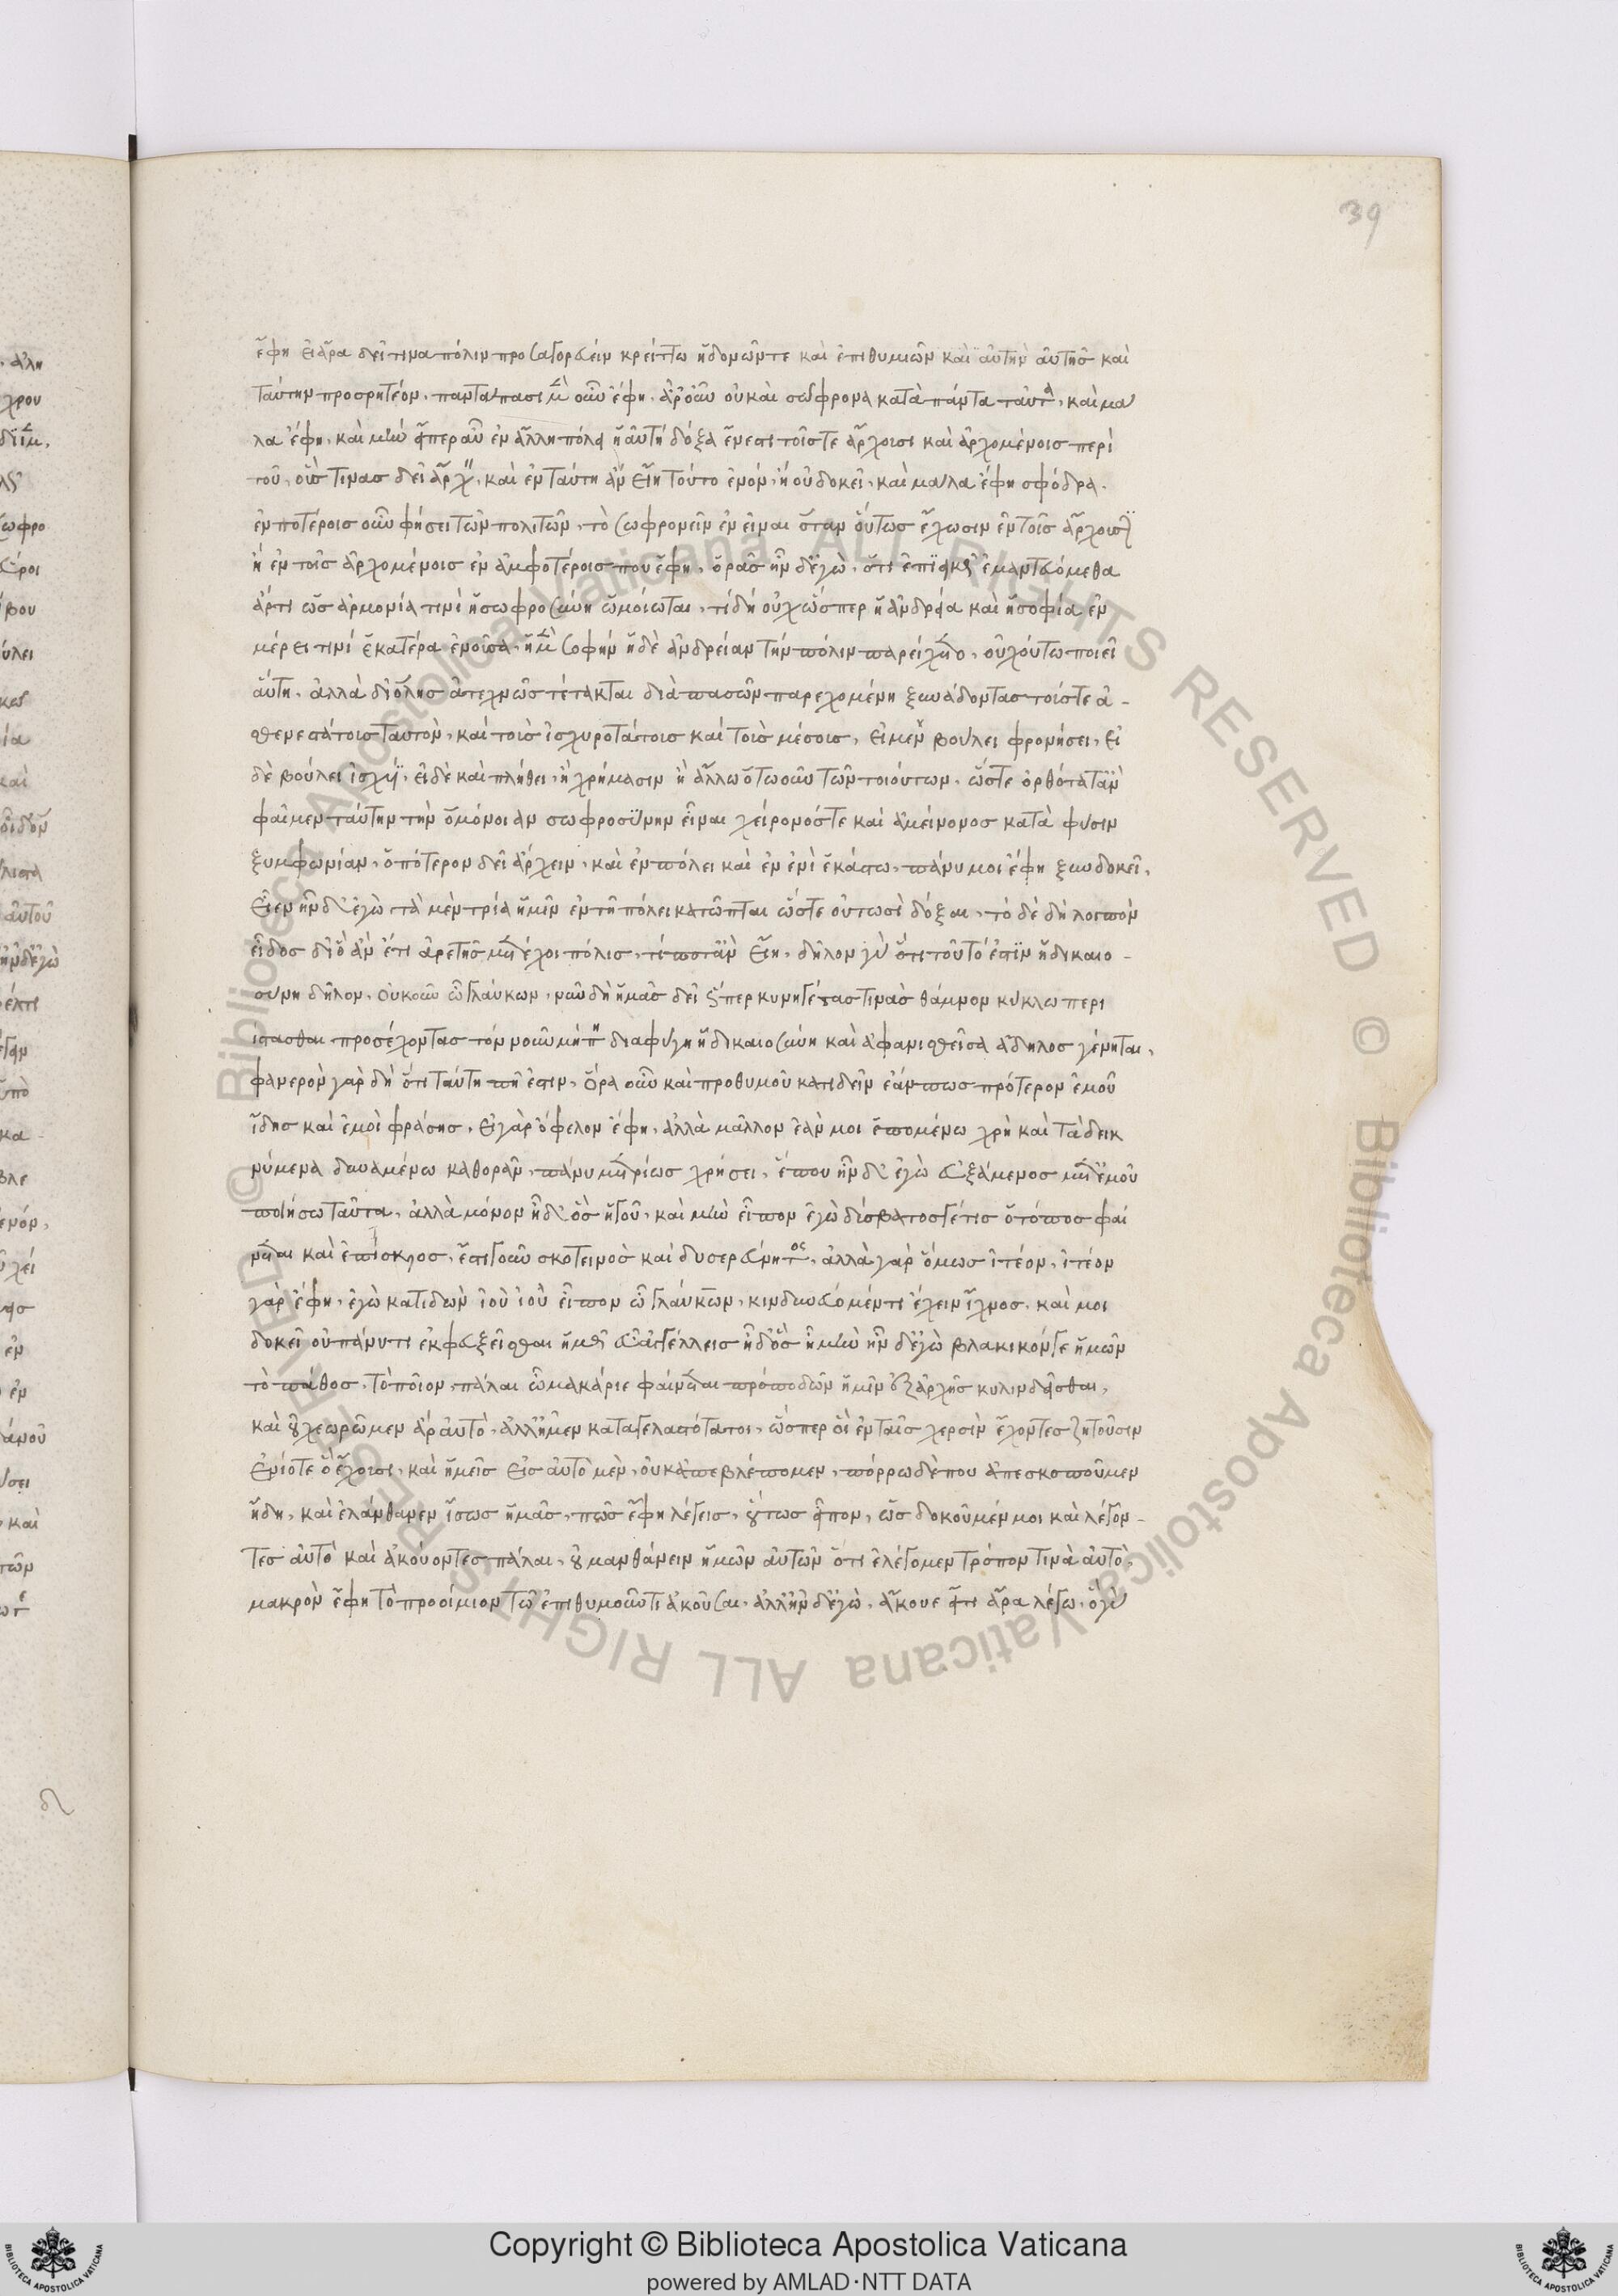 39
ἔφη εἰ ἄρα δεῖ τινα πόλιν προσαγορεύειν κρείττω ἡδονῶν τε καὶ ἐπιθυμιῶν καὶ αὐτὴν αὑτῆς καὶ
ταύτην προσρητέον, παντάπασι μὲν οὖν ἔφη. ἆρ' οὖν οὐ καὶ σώφρονα κατὰ πάντα ταῦτα, καὶ μά
λα ἔφη, καὶ μὴν εἴπερ αὖ ἐν ἄλλη πόλει ἡ αὐτὴ δόξα ἔνεστι τοῖς τε ἄρχουσι καὶ ἀρχομένοις περὶ
τοῦ, οὕς τινας δεῖ ἄρχειν, καὶ ἐν ταύτη ἂν εἴη τοῦτο ἐνὸν, ἢ οὐ δοκεῖ, καὶ μάλα ἔφη σφόδρα.
ἐν ποτέροις οὖν φήσεις τῶν πολιτῶν, τὸ σωφρονεῖν ἐνεῖναι ὅταν οὕτως ἔχωσιν ἐν τοῖς ἄρχουσιν
ἢ ἐν τοῖς ἀρχομένοις ἐν ἀμφοτέροις που ἔφη, ὁρᾶς ἦν δ' ἐγὼ, ὅτι ἐπιεικῶς ἐμαντευόμεθα
ἄρτι ὡς ἁρμονία τινὶ ἡ σωφροσύνη ὡμοίωται, τί δή οὐχ ὥσπερ ἡ ἀνδρεία καὶ ἡ σοφία ἐν
μέρει τινὶ ἑκατέρα ἐνοῦσα, ἡ μὲν σοφὴν ἡ δὲ ἀνδρείαν τὴν πόλιν παρείχετο, οὐχ οὕτω ποιεῖ
αὕτη, ἀλλὰ δι' ὅλης ἀτεχνῶς τέτακται διὰ πασῶν παρεχομένη ξυνάδοντας τούς τε ἀ-
σθενεστάτους ταυτὸν, καὶ τοὺς ἰσχυροτάτους καὶ τοὺς μέσους, εἰ μὲν βούλει φρονήσει, εἰ
δὲ βούλει ἰσχύϊ, εἰ δὲ καὶ πλήθει, ἢ χρήμασιν ἢ ἄλλω ὁτωοῦν τῶν τοιούτων, ὥστε ὀρθότατ' ἂν
φαῖμεν ταύτην τὴν ὁμόνοιαν σωφροσύνην εἶναι χείρονός τε καὶ ἀμείνονος κατὰ φύσιν
ξυμφωνίαν, ὁπότερον δεῖ ἄρχειν, καὶ ἐν πόλει καὶ ἐν ἑνὶ ἑκάστω, πάνυ μοι ἔφη ξυνδοκεῖ,
εἶεν ἦν δ' ἐγὼ τὰ μὲν τρία ἡμῖν ἐν τῆ πόλει κατῶπται ὥς γε οὑτωσὶ δόξαι, τὸ δὲ δὴ λοιπὸν
εἶδος δι' ὃ ἂν ἔτι ἀρετῆς μετέχοι πόλις, τί ποτ' ἂν εἴη, δῆλον γὰρ ὅτι τοῦτό ἐστιν ἡ δικαιο-
σύνη δῆλον, οὐκοῦν ὦ γλαύκων, νῦν δὴ ἡμᾶς δεῖ ὥσπερ κυνηγέτας τινὰς θάμνον κύκλω περι
ίστασθαι προσέχοντας τὸν νοῦν μή πη διαφύγη ἡ δικαιοσύνη καὶ ἀφανισθεῖσα ἄδηλος γένηται,
φανερὸν γὰρ δὴ ὅτι ταύτη πη ἔστιν, ὅρα οὖν καὶ προθυμοῦ κατιδεῖν ἐάν πως πρότερον ἐμοῦ
ἴδης καὶ ἐμοὶ φράσης, εἰ γὰρ ὤφελον ἔφη, ἀλλὰ μᾶλλον ἐάν μοι ἑπομένω χρῆ καὶ τὰ δεικ
νύμενα δυναμένω καθορᾶν, πάνυ μετρίως χρήσει, ἕπου ἦν δ' ἐγὼ εὐξάμενος μετ' ἐμοῦ
ποιήσω ταῦτα, ἀλλὰ μόνον ἦ δ' ὃς ἡγοῦ, καὶ μὴν εἶπον ἐγὼ δύσβατός γέ τις ὁ τόπος φαί
νεται καὶ ἐπίσκιος, ἔστι γοῦν σκοτεινὸς καὶ δυσερεύνητος, ἀλλὰ γὰρ ὅμως ἰτέον, ἰτέον
γὰρ ἔφη, ἐγὼ κατιδὼν ἰοὺ ἰοὺ εἶπον ὦ γλαύκων, κινδυνεύομέν τι ἔχειν ἴχνος, καί μοι
δοκεῖ οὐ πάνυ τι ἐκφευξεῖσθαι ἡμᾶς εὖ ἀγγέλλεις ἦ δ' ὅς ἦ μὴν ἦν δ' ἐγὼ βλακικόν γε ἡμῶν
τὸ πάθος, τὸ ποῖον, πάλαι ὦ μακάριε φαίνεται πρὸ ποδῶν ἡμῖν ἐξ ἀρχῆς κυλινδεῖσθαι,
καὶ οὐχ ἑωρῶμεν ἄρ' αὐτὸ, ἀλλ' ἦμεν καταγελαστότατοι, ὥσπερ οἱ ἐν ταῖς χερσὶν ἔχοντες ζητοῦσιν
ἐνίοτε ὃ ἔχουσι, καὶ ἡμεῖς εἰς αὐτὸ μὲν, οὐκ ἀπεβλέπομεν, πόρρω δέ που ἀπεσκοποῦμεν
ἧ δὴ, καὶ ἐλάνθανεν ἴσως ἡμᾶς, πῶς ἔφη λέγεις, οὕτως εἶπον, ὡς δοκοῦμέν μοι καὶ λέγον-
τες αὐτὸ καὶ ἀκούοντες πάλαι, οὐ μανθάνειν ἡμῶν αὐτῶν ὅτι ἐλέγομεν τρόπον τινὰ αὐτὸ,
μακρὸν ἔφη τὸ προοίμιον τῶ ἐπιθυμοῦντι ἀκοῦσαι, ἀλλ' ἦν δ' ἐγὼ, ἄκουε εἴ τι ἄρα λέγω, ὃ γὰρ
Copyright © Biblioteca Apostolica Vaticana
powered by AMLAD·NTT DATA